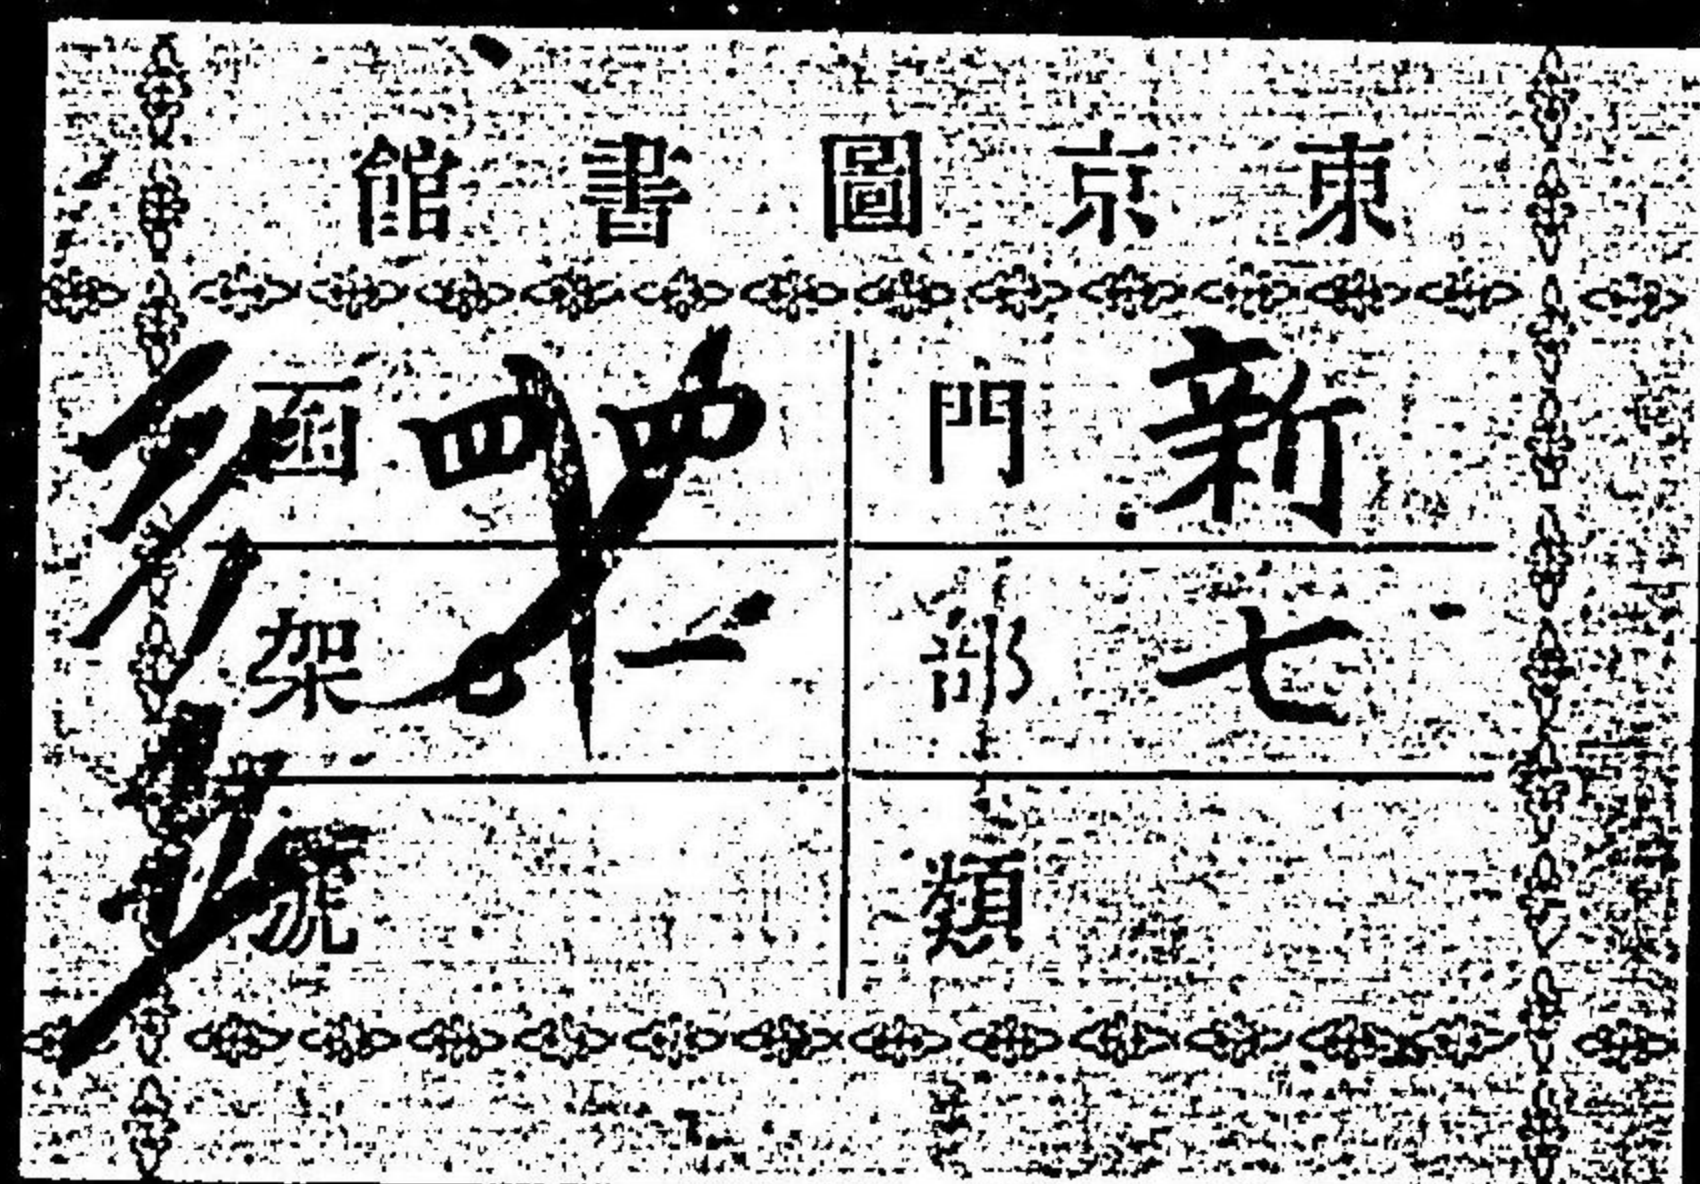 東京圖書館
新門
七部
類
四四函
一架
號